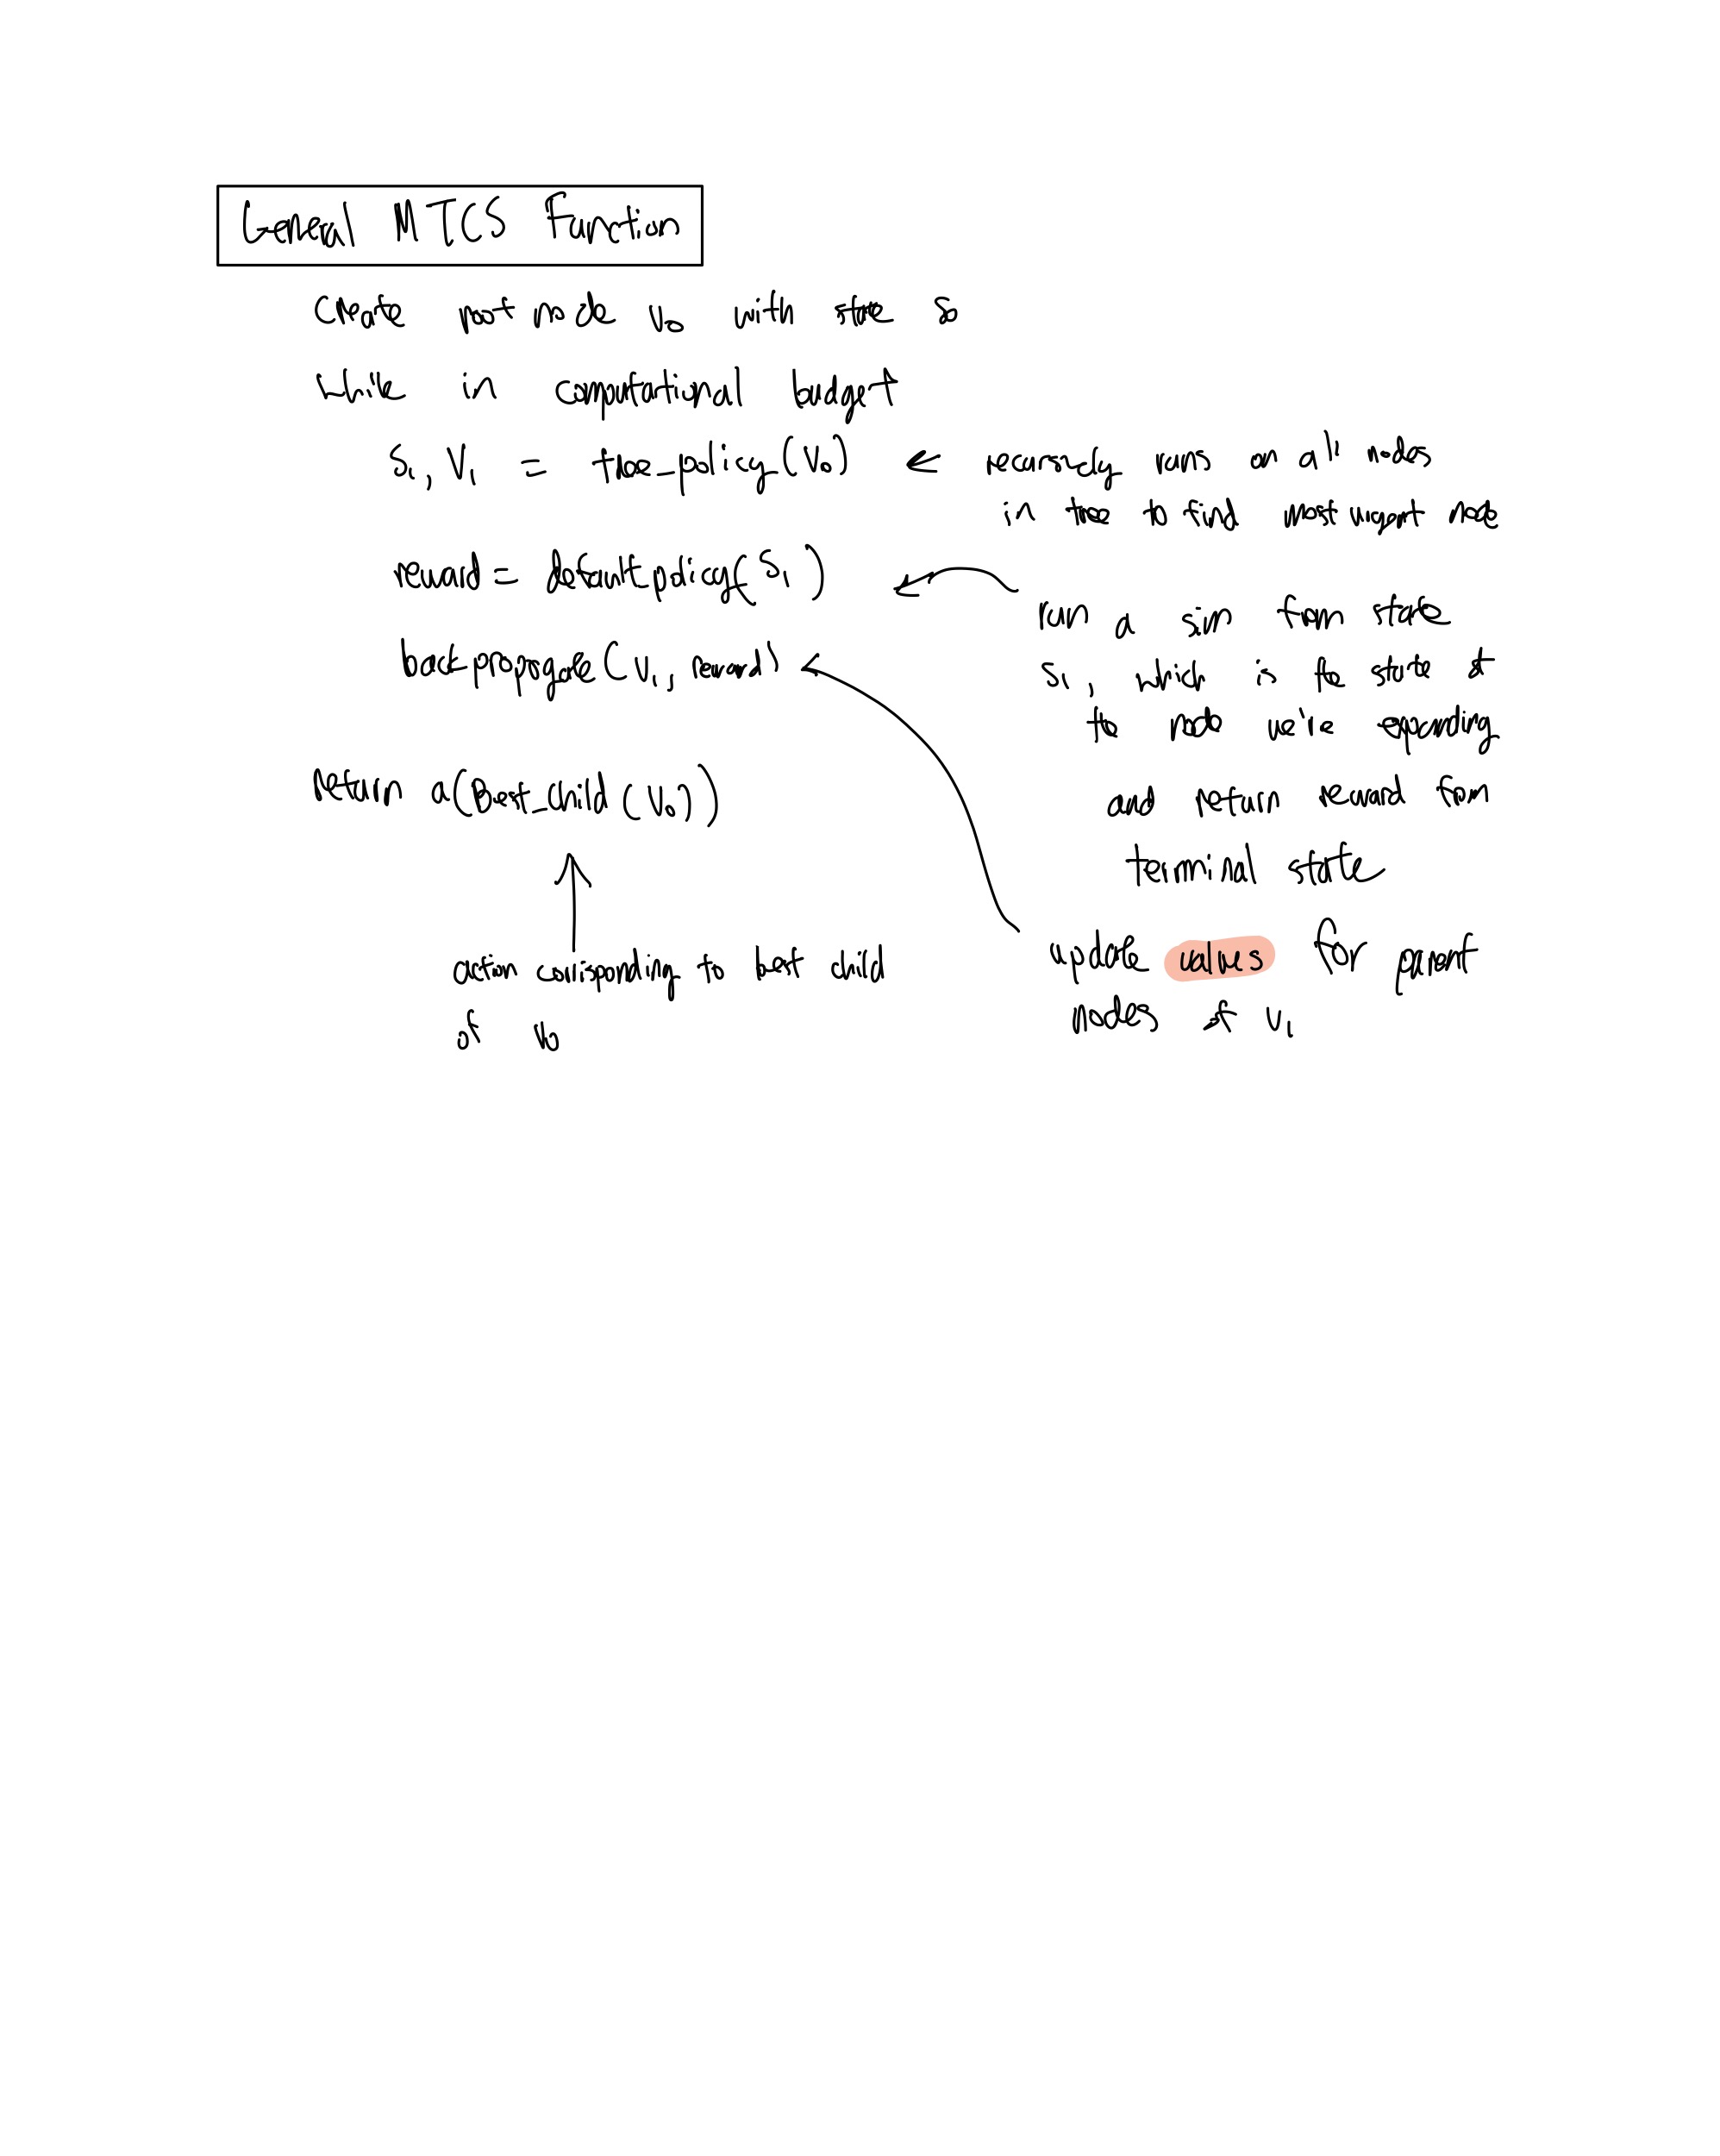 General MTCS Function
create root node v₀ with state s₀
while in computational budget
s₁, V₁ = tree_policy(V₀)
recursively runs on all nodes
in tree to find most urgent node
reward = default policy(s₁)
run a sim from state
s₁, which is the state of
the node we're expanding
and return reward from
terminal state
backpropogate(v₁, reward)
update values for parent
nodes of v₁
return a(Best_child(V₀))
action corrisponding to best child
of v₀